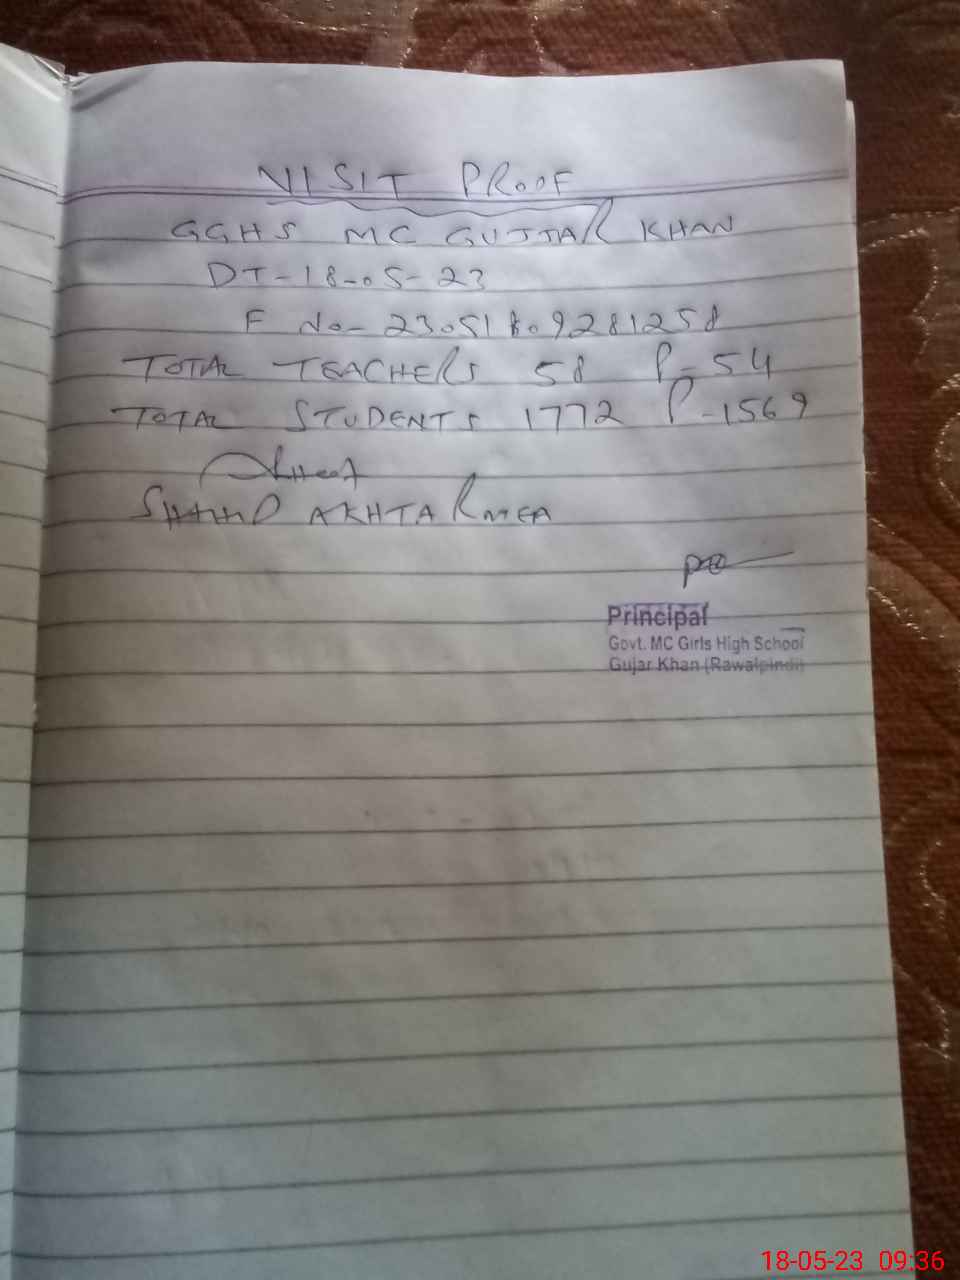 VISIT PROOF
GGHS MC GUJJAR KHAN
DT-18-05-23
F No- 23051809281258
TOTAL TEACHERS 58 P-54
TOTAL STUDENTS 1772 P-1569
SHAHID AKHTAR MEA
Principal
Govt. MC Girls High School
Gujar Khan (Rawalpindi)
18-05-23 09:36